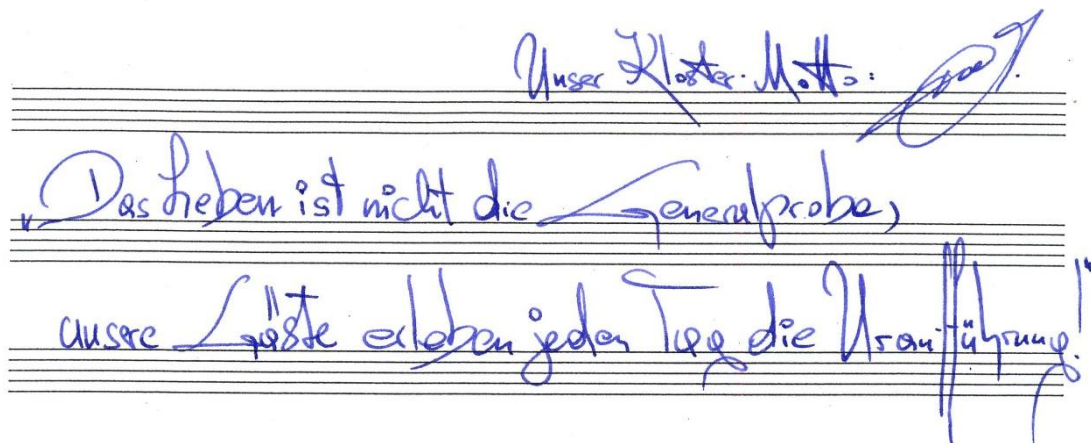 Unser Kloster-Motto:
„Das Leben ist nicht die Generalprobe,
unsre Gäste erleben jeden Tag die Uraufführung!“